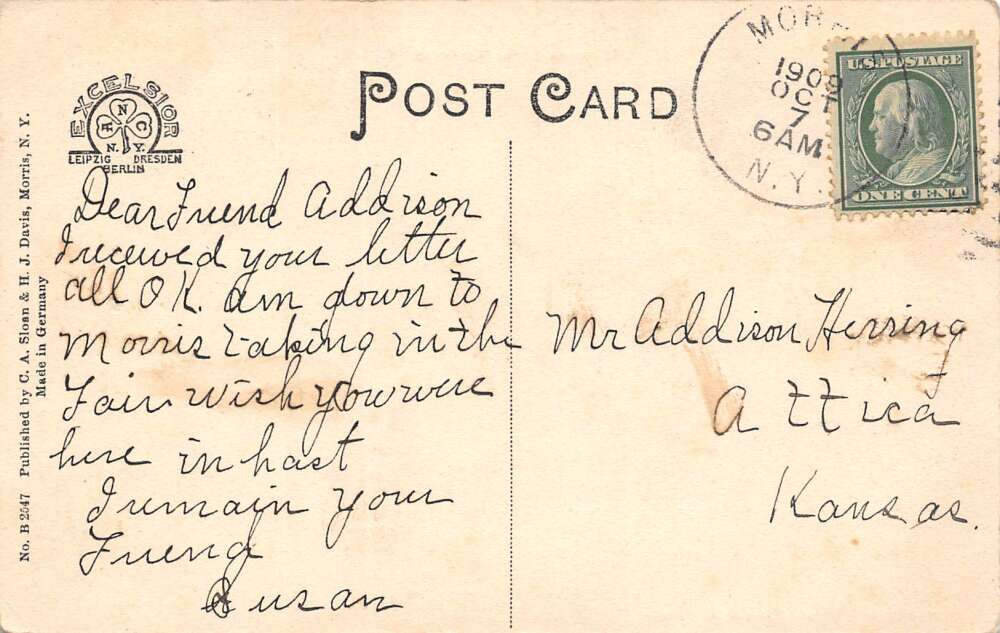 POST CARD
EXCELSIOR
N
R C
N.Y.
LEIPZIG DRESDEN
BERLIN
No. B 2547 Published by C. A. Sloan & H. J. Davis, Morris, N. Y.
Made in Germany
MORRIS
1909
OCT
7
6 AM
N.Y.
U.S. POSTAGE
ONE CENT
Dear Friend Addison
I received your letter
all O K. am down to
Morris taking in the
Fair Wish you were
here in hast
I remain your
Friend
Susan
Mr Addison Herring
Attica
Kansas.